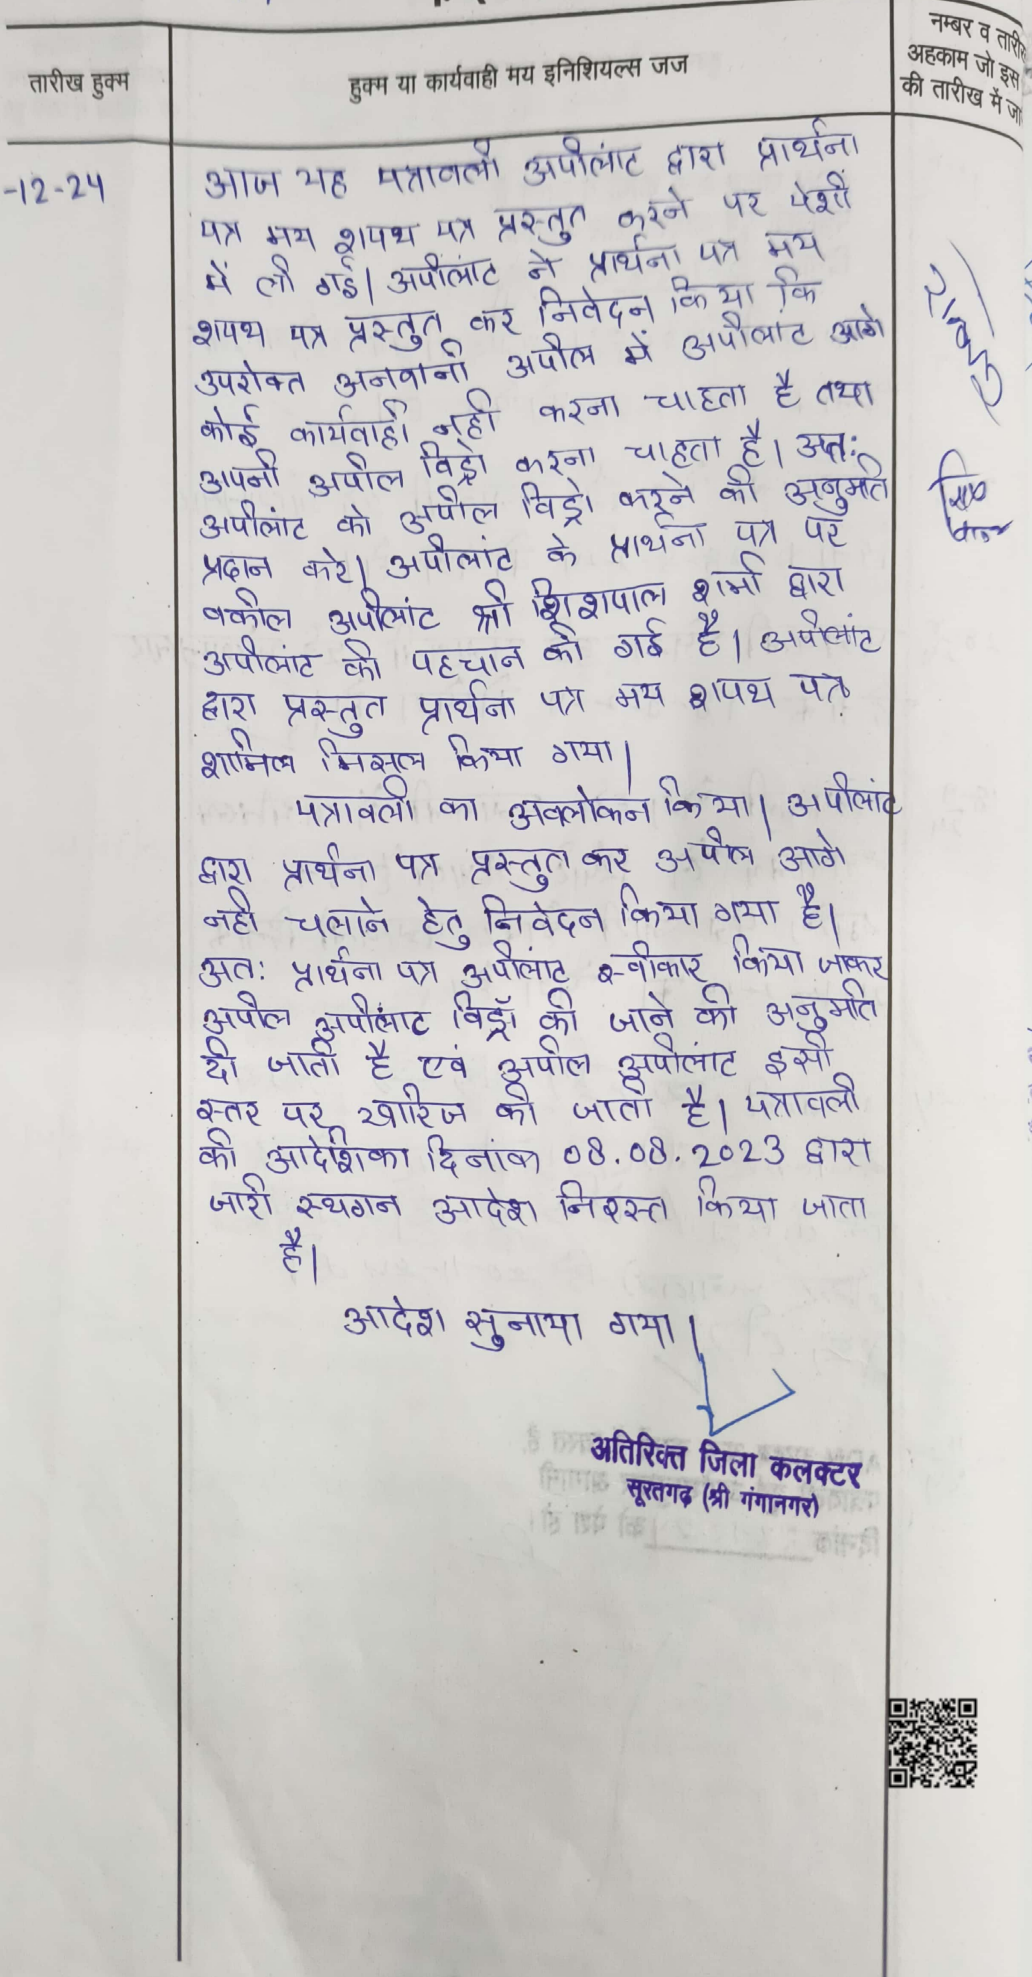 तारीख हुक्म
हुक्म या कार्यवाही मय इनिशियल्स जज
नम्बर व तारी
अहकाम जो इस
की तारीख में जा
-12-24
आज यह पत्रावली अपीलांट द्वारा प्रार्थना
पत्र मय शपथ पत्र प्रस्तुत करने पर पेशी
में ली गई। अपीलांट ने प्रार्थना पत्र मय
शपथ पत्र प्रस्तुत कर निवेदन किया कि
उपरोक्त अनवानी अपील में अपीलांट आगे
कोई कार्यवाही नही करना चाहता है तथा
अपनी अपील विड्रो करना चाहता है। अतः
अपीलांट को अपील विड्रो करने की अनुमति
प्रदान करे। अपीलांट के प्रार्थना पत्र पर
वकील अपीलांट श्री शिशपाल शर्मा द्वारा
अपीलांट की पहचान की गई है। अपीलांट
द्वारा प्रस्तुत प्रार्थना पत्र मय शपथ पत्र
शामिल मिसल किया गया।
पत्रावली का अवलोकन किया। अपीलांट
द्वारा प्रार्थना पत्र प्रस्तुत कर अपील आगे
नही चलाने हेतु निवेदन किया गया है।
अतः प्रार्थना पत्र अपीलांट स्वीकार किया जाकर
अपील अपीलांट विड्रॉ की जाने की अनुमति
दी जाती है एवं अपील अपीलांट इसी
स्तर पर खारिज की जाती है। पत्रावली
की आदेशिका दिनांक 08.08.2023 द्वारा
जारी स्थगन आदेश निरस्त किया जाता
है।
आदेश सुनाया गया।
अतिरिक्त जिला कलक्टर
सूरतगढ़ (श्री गंगानगर)